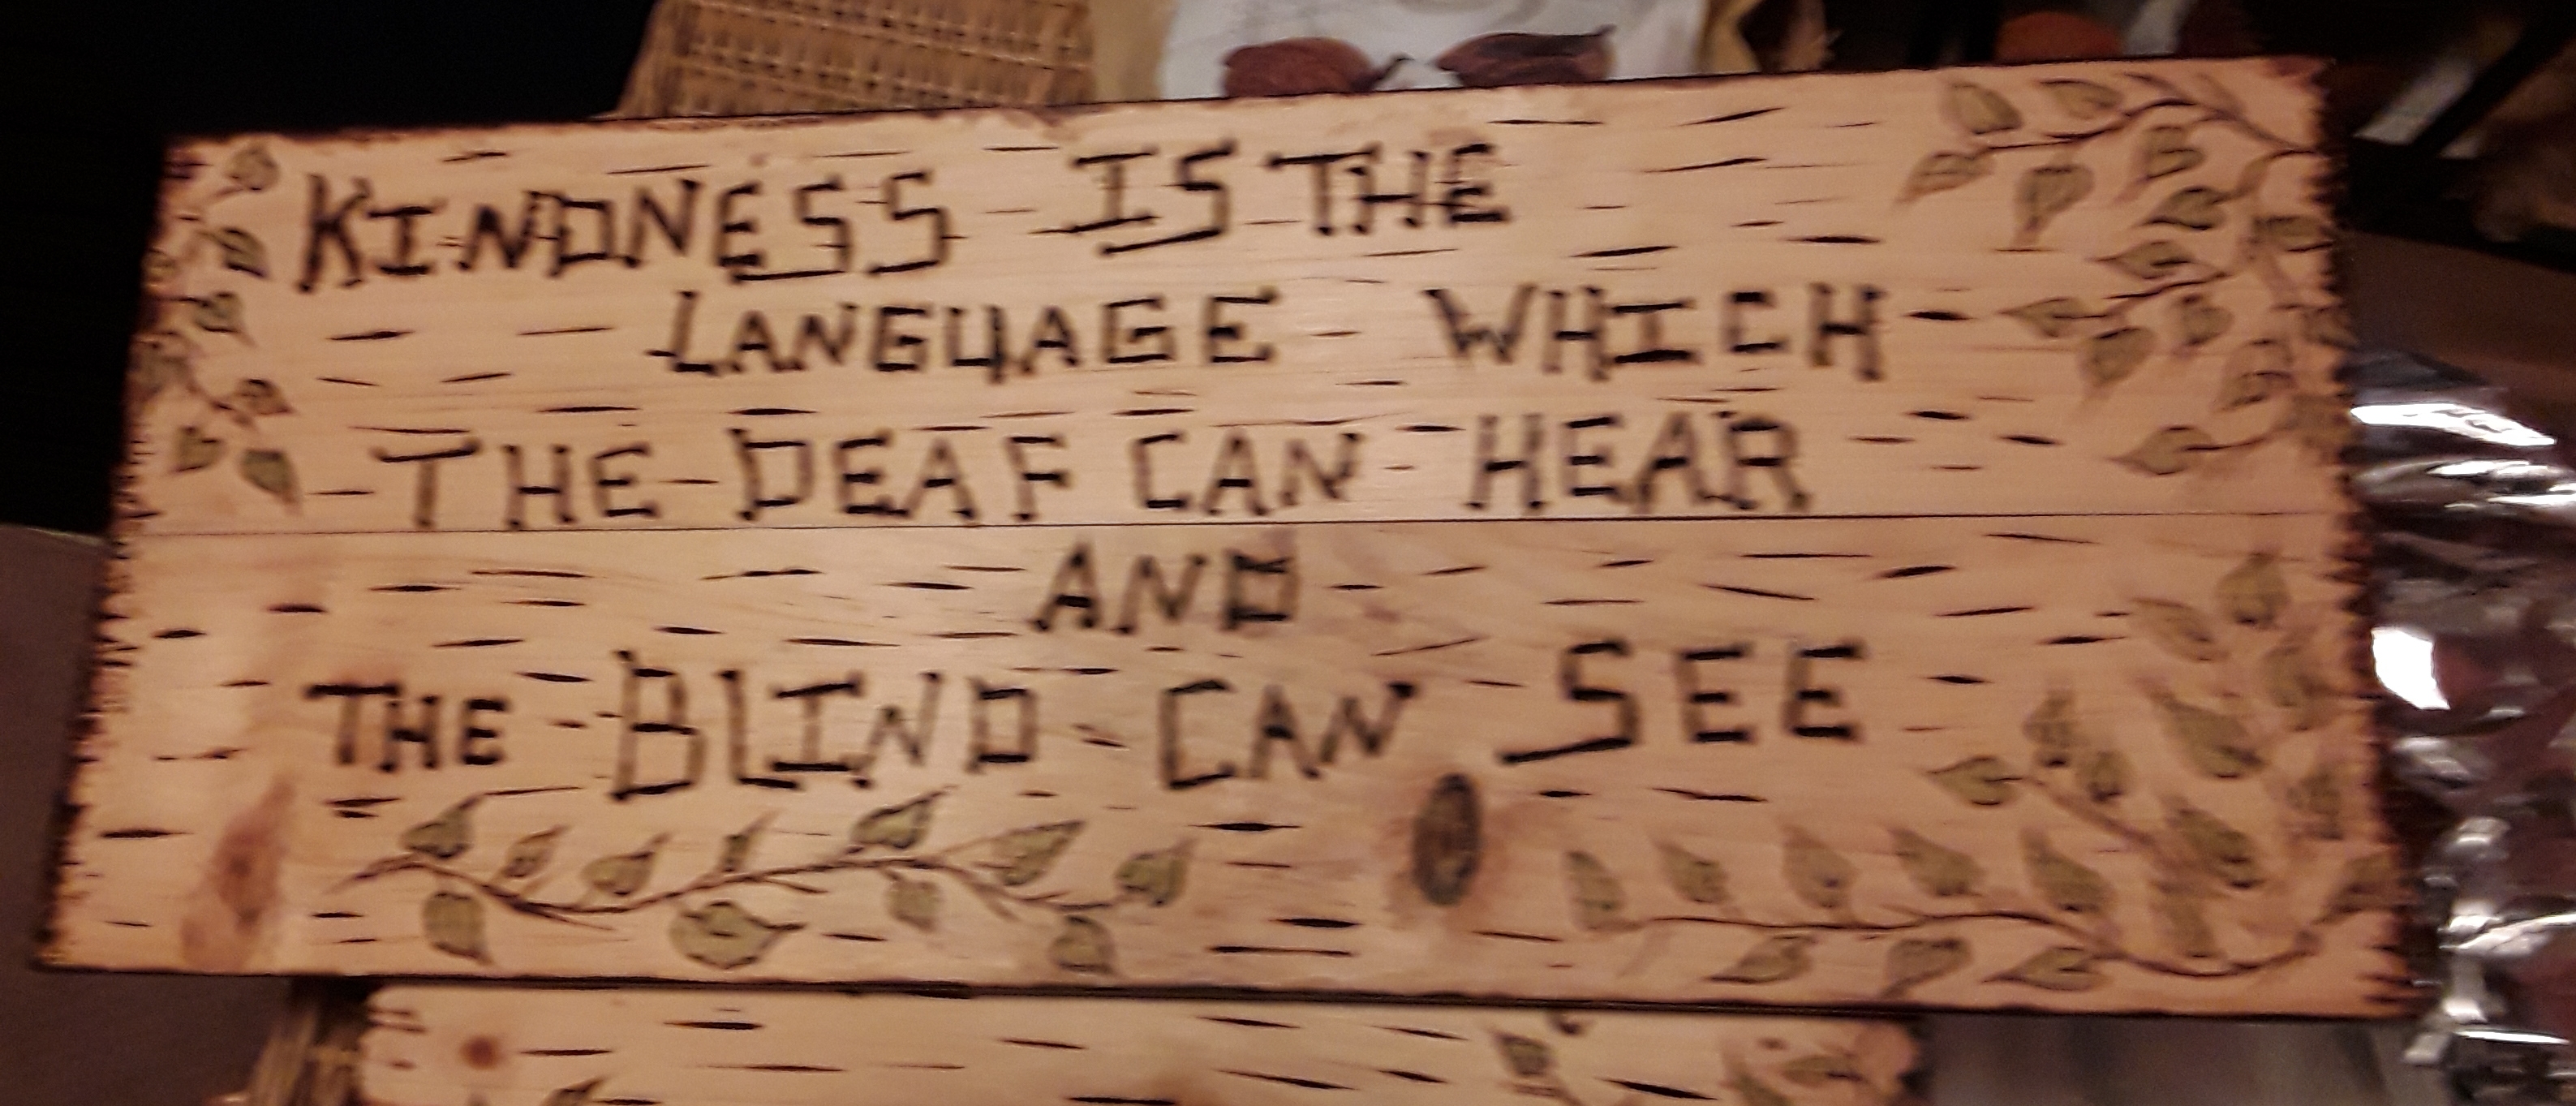 KINDNESS IS THE
LANGUAGE WHICH
THE DEAF CAN HEAR
AND
THE BLIND CAN SEE